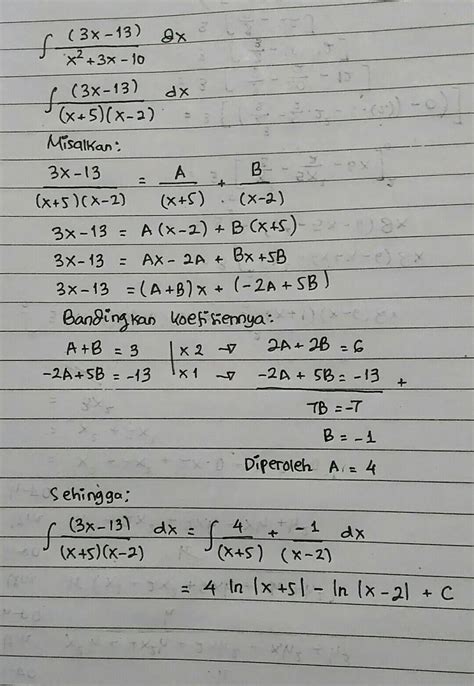 ∫ (3x-13) / x² + 3x - 10 dx
∫ (3x-13) / (x+5)(x-2) dx
Misalkan:
3x-13 / (x+5)(x-2) = A / (x+5) + B / (x-2)
3x-13 = A(x-2) + B(x+5)
3x-13 = Ax - 2A + Bx+5B
3x-13 = (A+B)x + (-2A + 5B)
Bandingkan koefisiennya:
A+B = 3 | x 2 → 2A + 2B = 6
-2A+5B = -13 | x 1 → -2A + 5B = -13 +
7B = -7
B = -1
Diperoleh A = 4
Sehingga:
∫ (3x-13) / (x+5)(x-2) dx = ∫ 4 / (x+5) + -1 / (x-2) dx
= 4 ln |x+5| - ln |x-2| + C